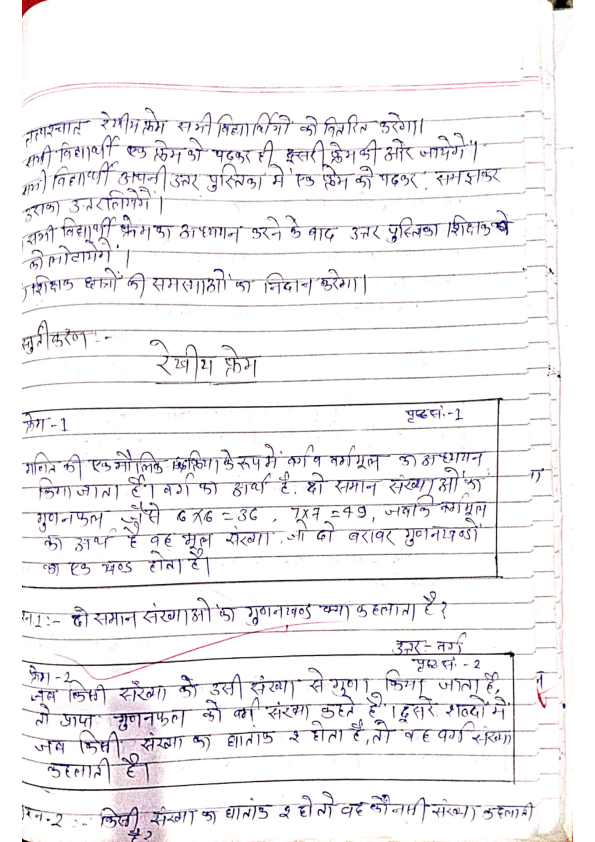 तत्पश्चात रेखीय फ्रेम सभी विद्यार्थियों को वितरित करेगा।
सभी विद्यार्थी एक फ्रेम को पढकर ही दूसरी फ्रेम की ओर जायेगे।
सभी विद्यार्थी अपनी उत्तर पुस्तिका में एक फ्रेम को पढकर, समझकर
उसका उत्तर लिखेगे।
सभी विद्यार्थी फ्रेम का अध्ययन करने के बाद उत्तर पुस्तिका शिक्षक
को लौटायेगें।
शिक्षक छात्रों की समस्याओं का निदान करेगा।
स्तुतीकरण :-
रेखीय फ्रेम
फ्रेम -1 पृष्ठ सं:-1
गणित की एक मौलिक प्रक्रिया के रूप में वर्ग व वर्गमूल का अध्ययन
किया जाता है। वर्ग का अर्थ है. दो समान संख्याओं का
गुणनफल, जैसे 6×6=36, 7×7=49, जबकि वर्गमूल
का अर्थ है वह मूल संख्या जो दो बराबर गुणनखण्डो
का एक खण्ड होता है।
1:- दो समान संख्याओं का गुणनखण्ड क्या कहलाता है?
उत्तर - वर्ग
फ्रेम -2 पृष्ठ सं. -2
जब किसी संख्या को उसी संख्या से गुणा किया जाता है,
तो प्राप्त गुणनफल को वर्ग संख्या कहते है। दूसरे शब्दों में
जब किसी संख्या का घातांक 2 होता है, तो वह वर्ग संख्या
कहलाती है।
2 :- किसी संख्या का घातांक 2 हो तो वह कौनसी संख्या कहलाती
है?